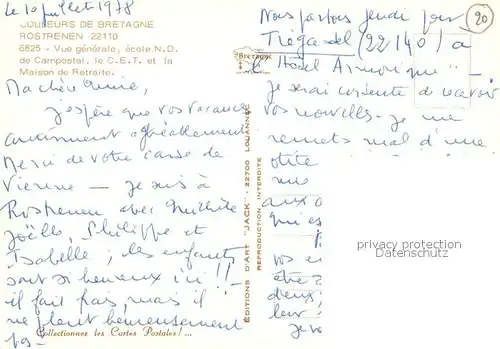 Le 10 juillet 1978
COULEURS DE BRETAGNE
ROSTRENEN 22110
6825 - Vue générale, école N.D.
de Campostal, le C.E.T. et la
Maison de Retraite.
Ma chère
j'espère que vos vacances
continuent agréablement
Merci de votre carte de
Vienne — je suis à
Rostrenen avec
Joëlle, Philippe et
Isabelle ; les enfants
sont si heureux ici !!
il fait frais, mais il
ne pleut heureusement
pas -
Collectionnez les Cartes Postales!...
BRETAGNE
EDITIONS D'ART "JACK" - 22700 LOUANNEC
REPRODUCTION INTERDITE
20
Nous partons jeudi pour
Trégastel (22140) à
l'Hôtel Armorique" —
je serai contente de recevoir
vos nouvelles - je me
remets mal d'une
otite
aux o
qui es
vos
être
deux,
leur
je v
privacy protection
Datenschutz